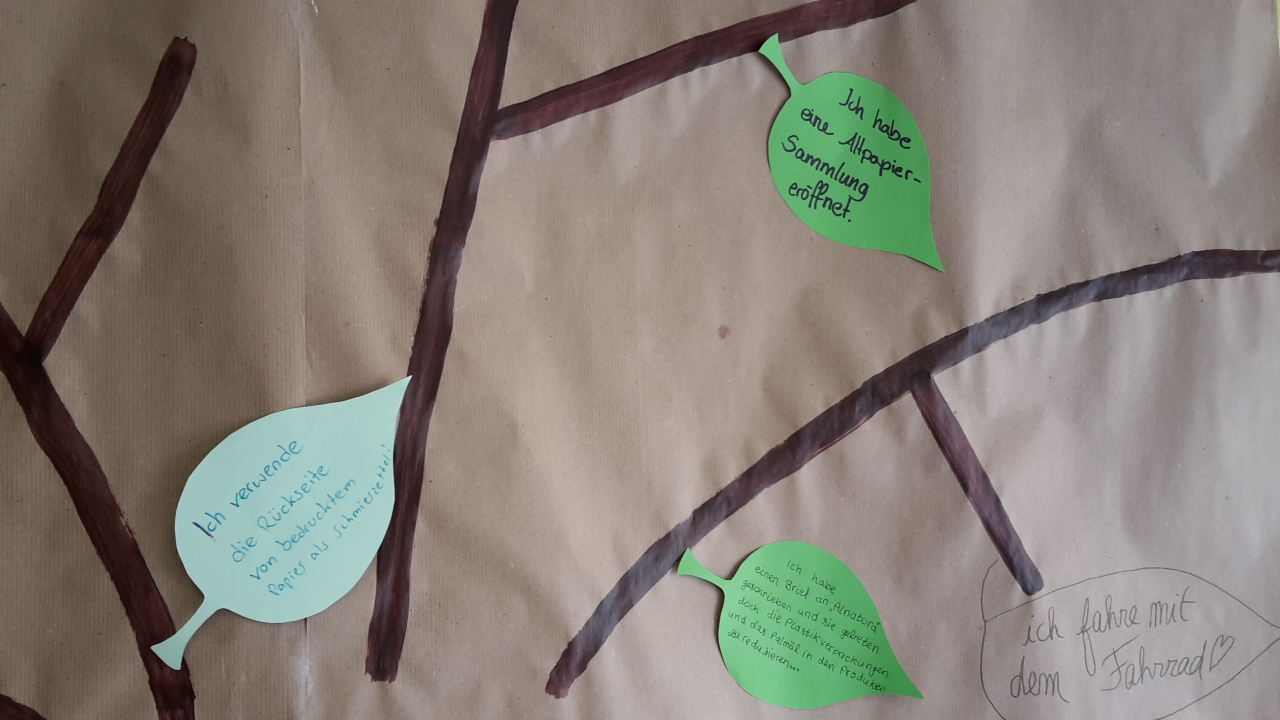 Ich habe
eine Altpapier-
Sammlung
eröffnet!
Ich verwende
die Rückseite
von bedrucktem
Papier als Schmierzettel!
Ich habe
einen Brief an "Alnatura"
geschrieben und sie gebeten
doch die Plastikverpackungen
und das Palmöl in den Produkten
zu reduzieren...
ich fahre mit
dem Fahrrad♡